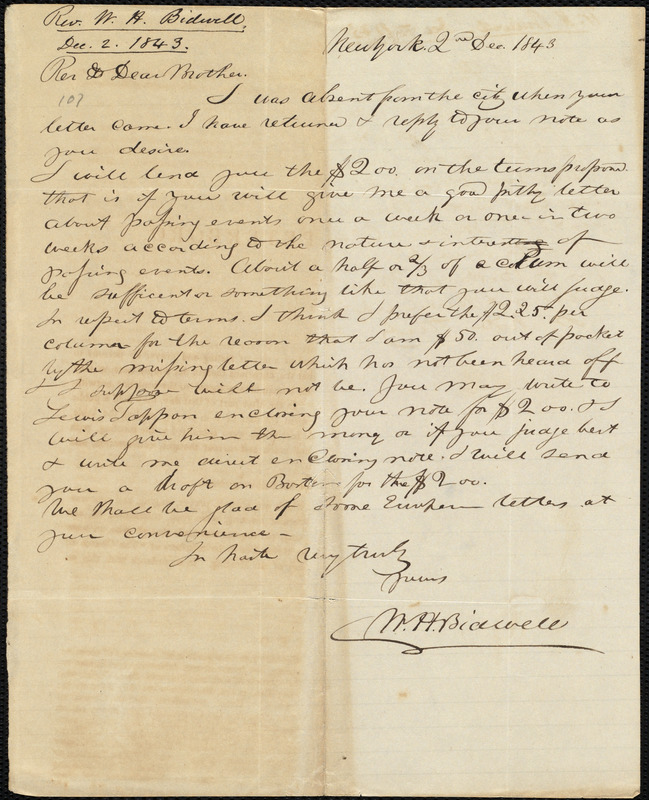 Rev. W. H. Bidwell,
Dec. 2. 1843.
New York. 2nd Dec. 1843
Rev & Dear Brother.
107
I was absent from the city when your
letter came. I have returned & reply to your note as
you desire.
I will lend you the $200. on the terms proposed
that is if you will give me a good pithy letter
about passing events once a week or once in two
weeks according to the nature & interesting of
passing events. About a half or 2/3 of a colum will
be sufficent or something like that you will judge.
In repect to terms. I think I prefer the $2.25. per
column for the reason that I am $50. out of pocket
by the missing letter which has not been heard off
& I suppose will not be. You may write to
Lewis Tappan enclosing your note for $200. & I
will give him the money or if you judge best
& write me direct enclosing note. I will send
you a draft on Boston for the $200.
We shall be glad of some European letters at
your convenience –
In haste very truly
yours
W. H. Bidwell